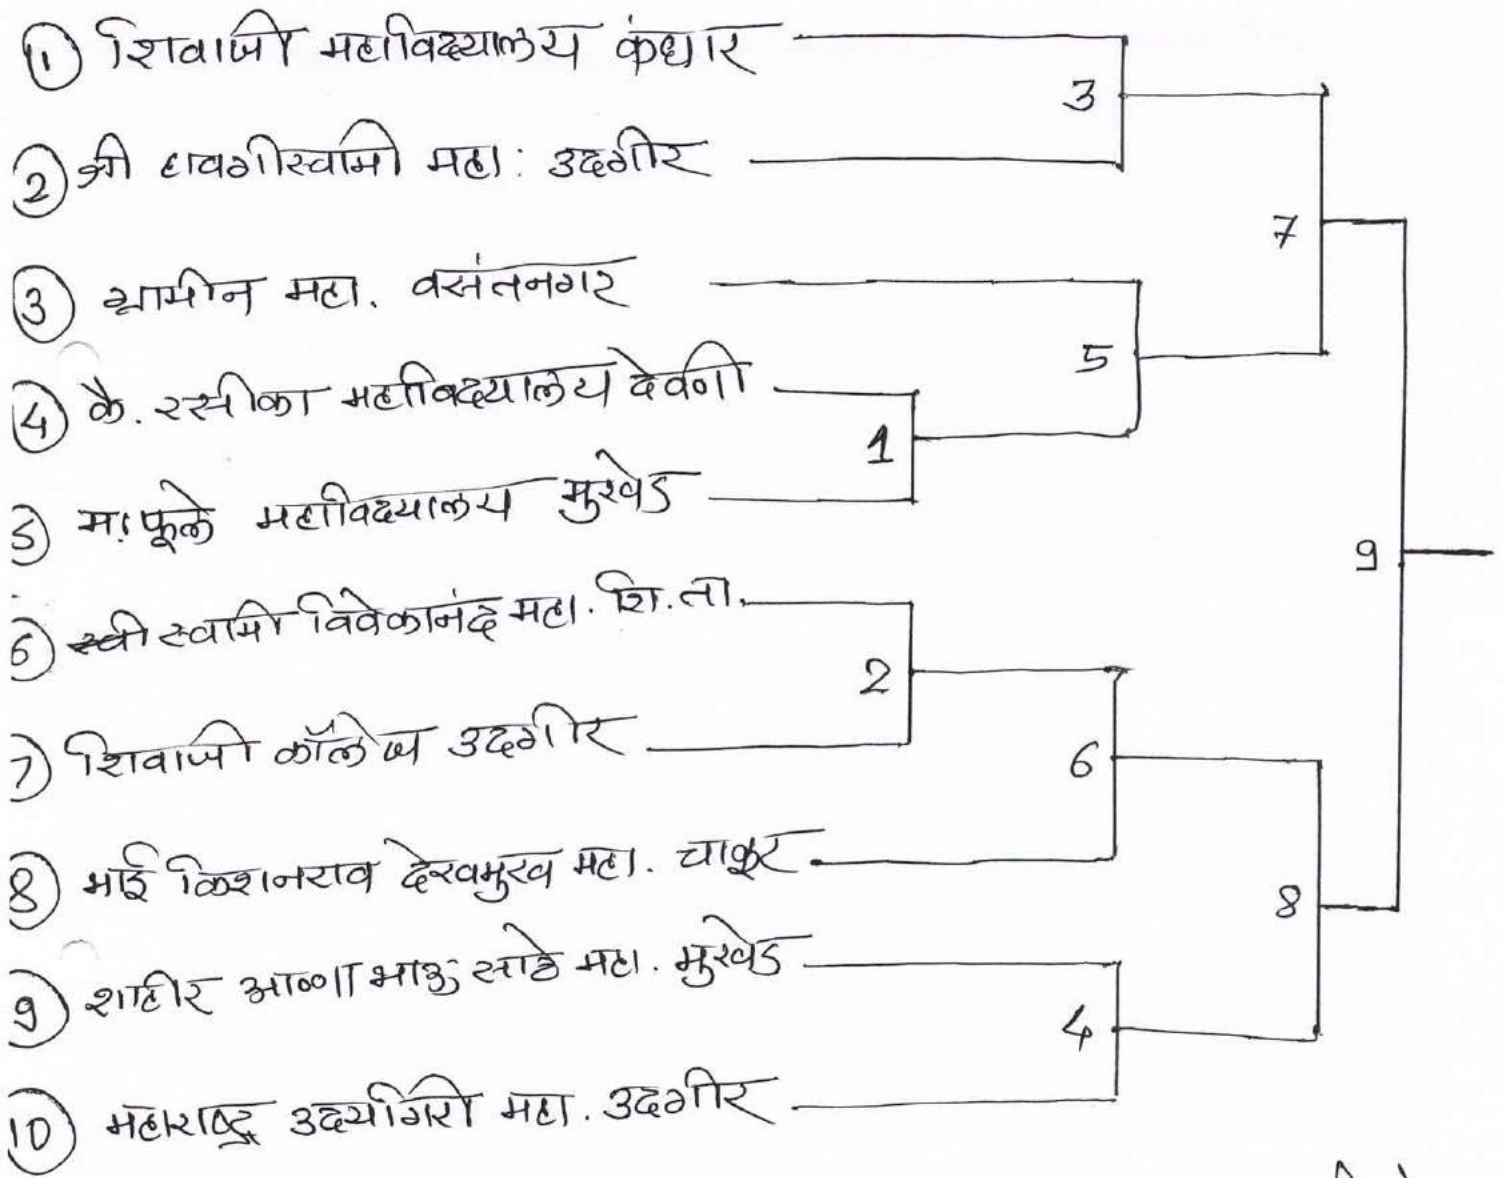 ① शिवाजी महाविद्यालय कंधार
② श्री हावगीस्वामी महा: उदगीर
③ ग्रामीन महा. वसंतनगर
④ कै. रसीका महाविद्यालय देवणी
5 म. फूले महाविद्यालय मुखेड
6 स्वामी विवेकानंद महा. शि. ता.
7 शिवाजी कॉलेज उदगीर
8 भाई किशनराव देखमुख महा. चाकूर
9 शाहीर आण्णाभाऊ साठे महा. मुखेड
10 महाराष्ट्र उदयगिरी महा. उदगीर
3
7
5
1
9
2
6
8
4